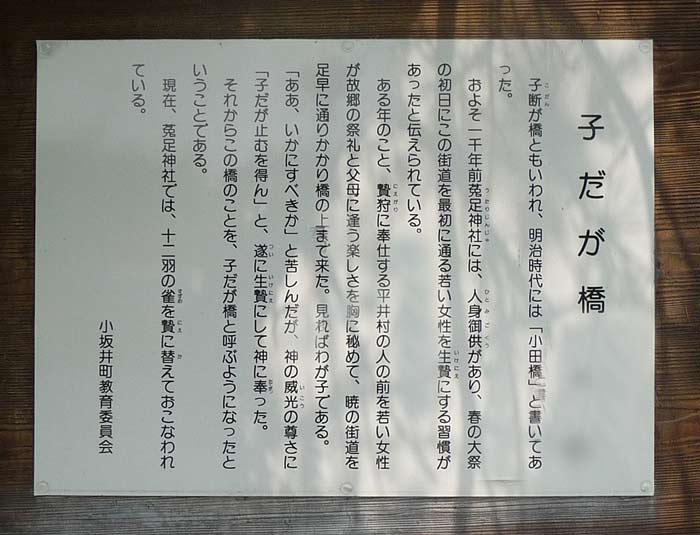 子だが橋
子断が橋ともいわれ、明治時代には「小田橋」と書いてあ
った。
およそ一千年前菟足神社には、人身御供があり、春の大祭
の初日にこの街道を最初に通る若い女性を生贄にする習慣が
あったと伝えられている。
ある年のこと、贄狩に奉仕する平井村の人の前を若い女性
が故郷の祭礼と父母に逢う楽しさを胸に秘めて、暁の街道を
足早に通りかかり橋の上まで来た。見ればわが子である。
「ああ、いかにすべきか」と苦しんだが、神の威光の尊さに
「子だが止むを得ん」と、遂に生贄にして神に奉った。
それからこの橋のことを、子だが橋と呼ぶようになったと
いうことである。
現在、菟足神社では、十二羽の雀を贄に替えておこなわれ
ている。
小坂井町教育委員会